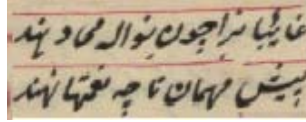 غایبا نرا چون نواله می دهند
پیش مهمان تا چه نعمتها نهند